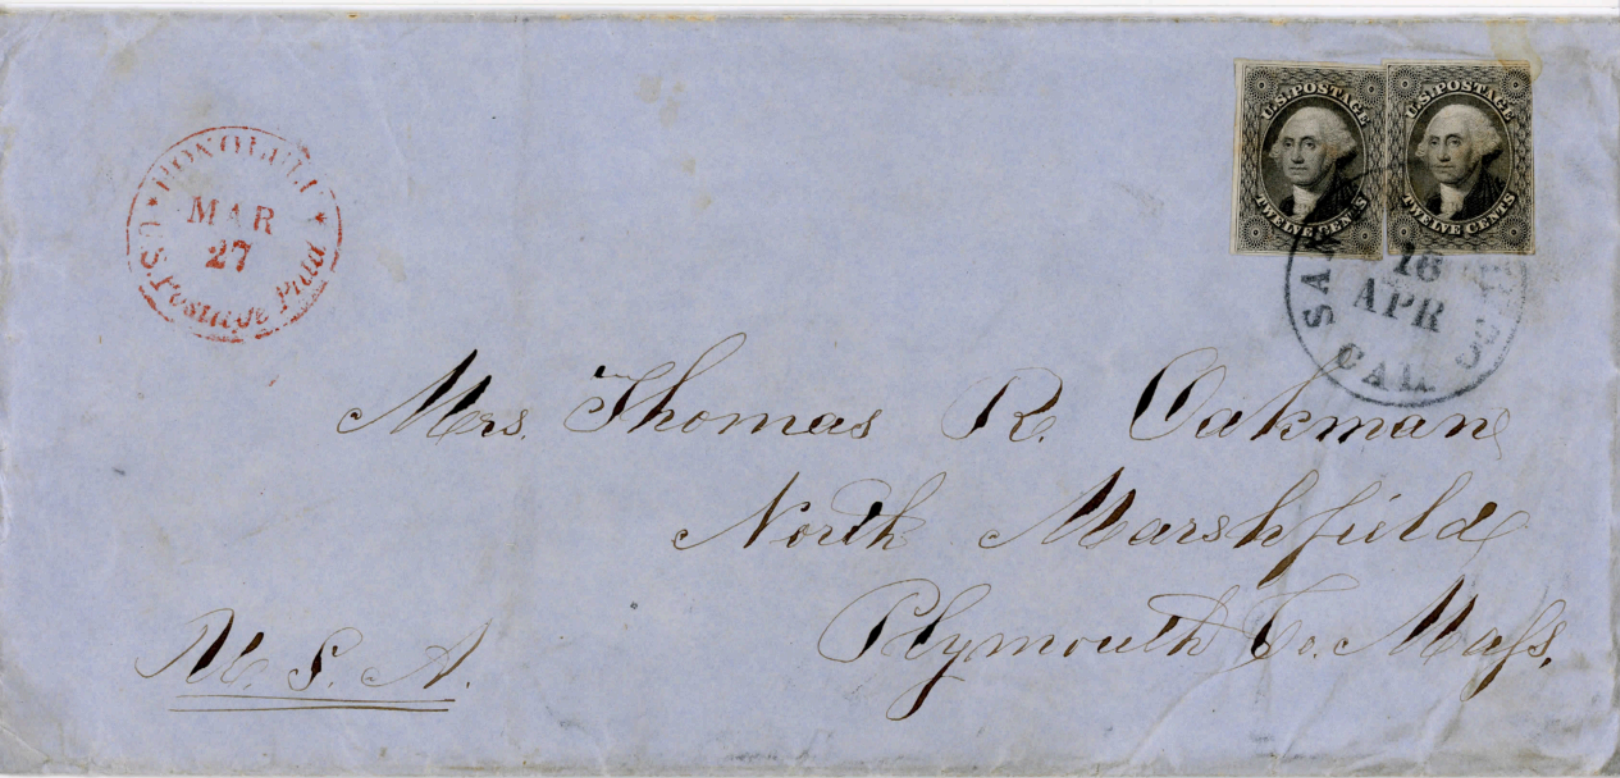 HONOLULU
MAR
27
U.S. Postage Paid
U.S. POSTAGE
TWELVE CENTS
U.S. POSTAGE
TWELVE CENTS
SAN
16
APR
CAL
Mrs. Thomas R. Oakman
North Marshfield
Plymouth Co. Maſs.
U. S. A.